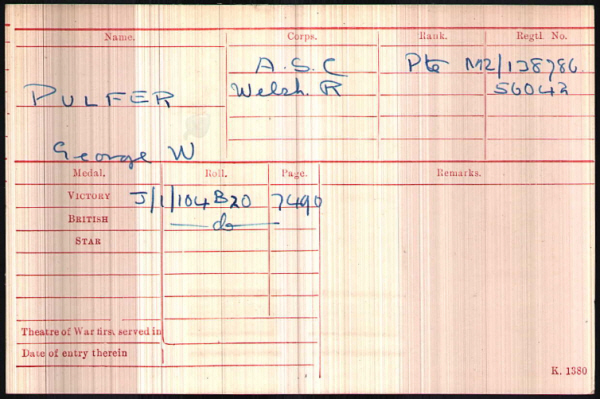 Name. Corps. Rank. Regtl. No.
A.S.C Pte M2/138786
PULFER Welsh. R 56042
George W
Medal. Roll. Page. Remarks.
VICTORY J/1/104 B20 7490
BRITISH do
STAR
Theatre of War first served in
Date of entry therein
K. 1380